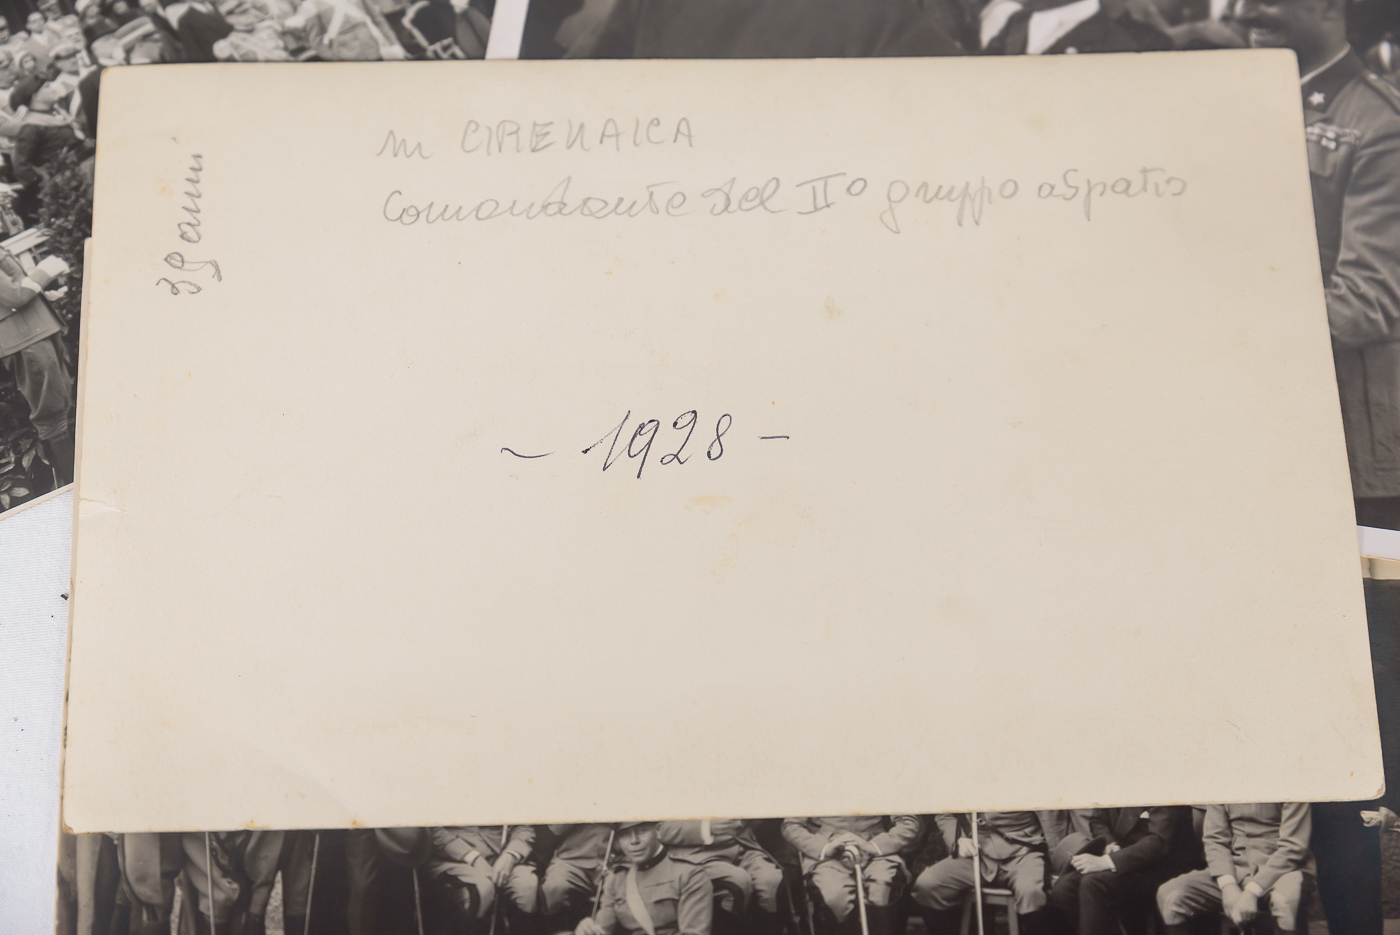 in CIRENAICA
Comandante del II° gruppo aspatis
- 1928 -
39 anni